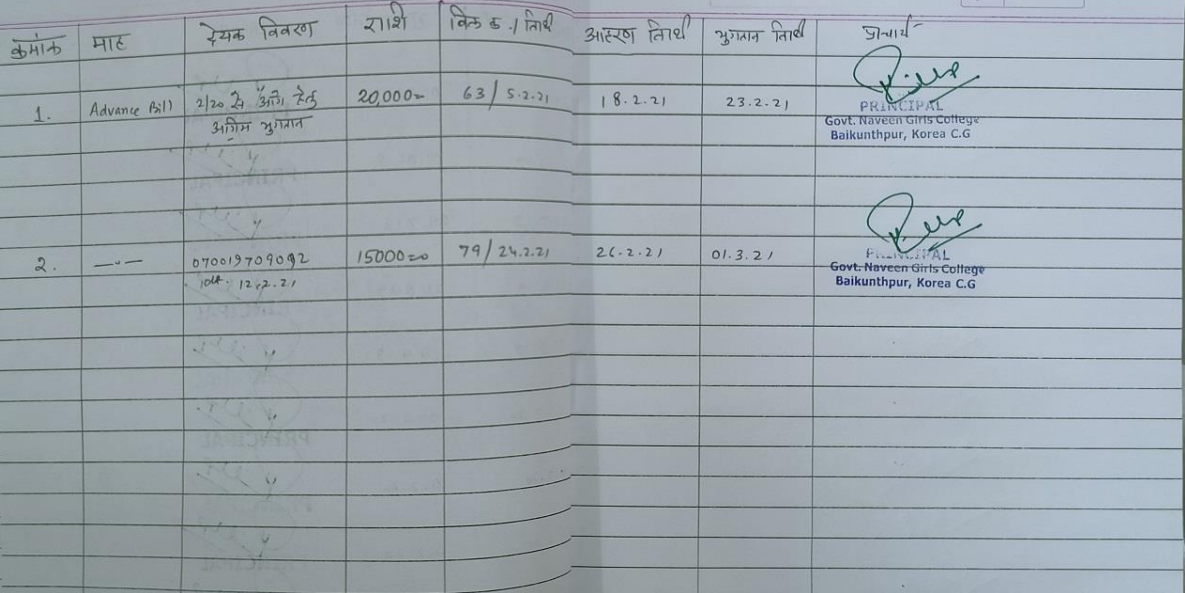 क्रमांक माह देयक विवरण राशि बिल क्र./तिथी आहरण तिथी भुगतान तिथी प्राचार्य
1. Advance Bill 2/20 से आगे हेतु 20,000= 63/5.2.21 18.2.21 23.2.21
अग्रिम भुगतान
PRINCIPAL
Govt. Naveen Girls College
Baikunthpur, Korea C.G
2. —〃— 070019709092 15000=00 79/24.2.21 26.2.21 01.3.21
12.2.21
PRINCIPAL
Govt. Naveen Girls College
Baikunthpur, Korea C.G